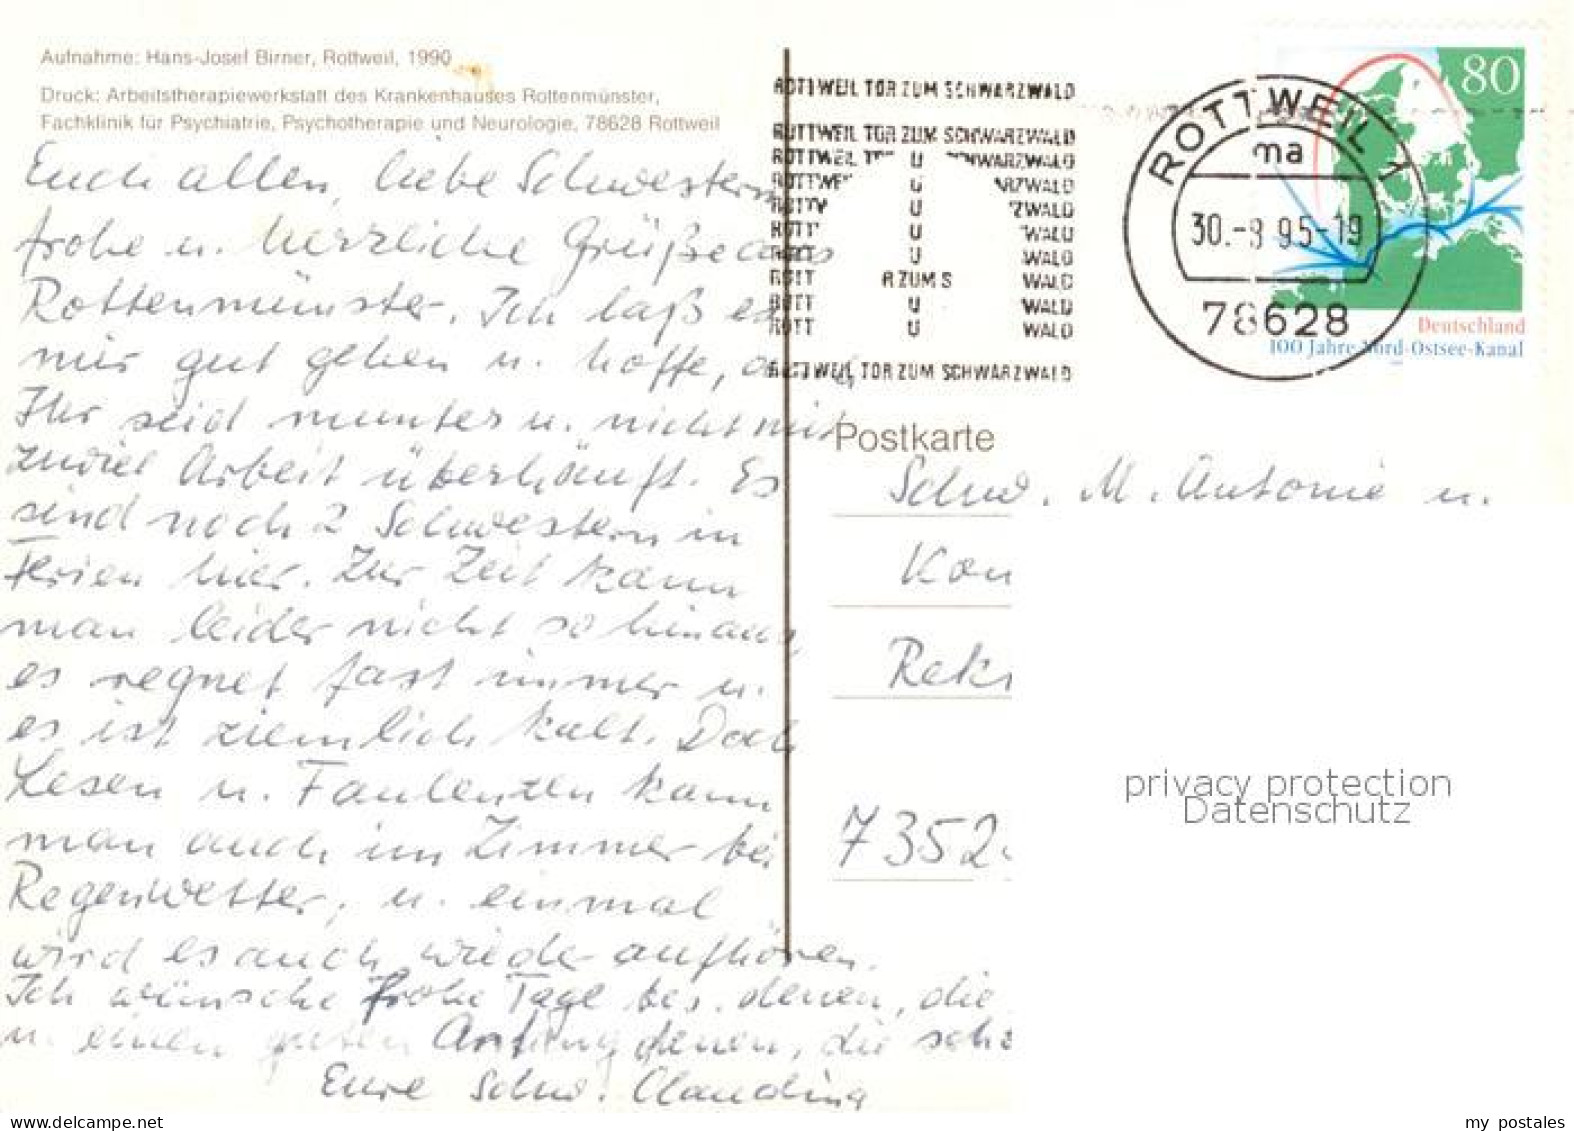 Aufnahme: Hans-Josef Birner, Rottweil, 1990
Druck: Arbeitstherapiewerkstatt des Krankenhauses Rottenmünster,
Fachklinik für Psychiatrie, Psychotherapie und Neurologie, 78628 Rottweil
Euch allen, liebe Schwestern
frohe u. herzliche Grüße aus
Rottenmünster. Ich laß es
mir gut gehen u. hoffe, auch
Ihr seid munter u. nicht mit
zuviel Arbeit überhäuft. Es
sind noch 2 Schwestern in
Ferien hier. Zur Zeit kann
man leider nicht so hinaus,
es regnet fast immer u.
es ist ziemlich kalt. Doch
Lesen u. Faulenzen kann
man auch im Zimmer bei
Regenwetter, u. einmal
wird es auch wieder aufhören.
Ich wünsche frohe Tage bes. denen, die
u. einen guten Anfang denen, die
Eure Schw. Claudina
ROTTWEIL TOR ZUM SCHWARZWALD
ROTTWEIL TOR ZUM SCHWARZWALD
ROTTWEIL U SCHWARZWALD
ROTTWE U ARZWALD
ROTTW U ZWALD
ROTT U WALD
ROTT U WALD
ROTT R ZUM S WALD
ROTT U WALD
ROTT U WALD
ROTTWEIL TOR ZUM SCHWARZWALD
ROTTWEIL 1
ma
30.-8.95-19
78628
80
Deutschland
100 Jahre Nord-Ostsee-Kanal
Postkarte
Schw. M. Antonie u.
Kon
Rek
7352
privacy protection
Datenschutz
delcampe.net
my postales